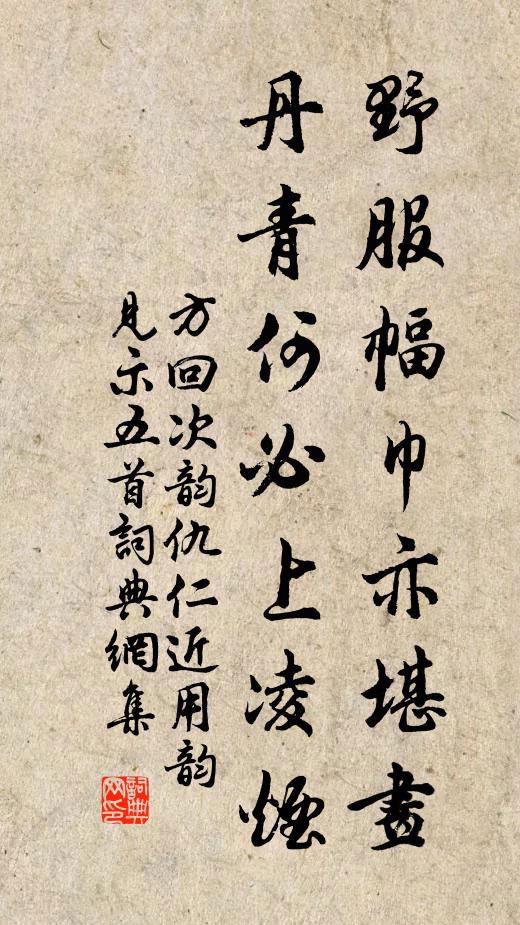 野服幅巾亦堪畫
丹青何必上凌煙
方回次韵仇仁近用韵
見示五首詞典網集
詞典
网印